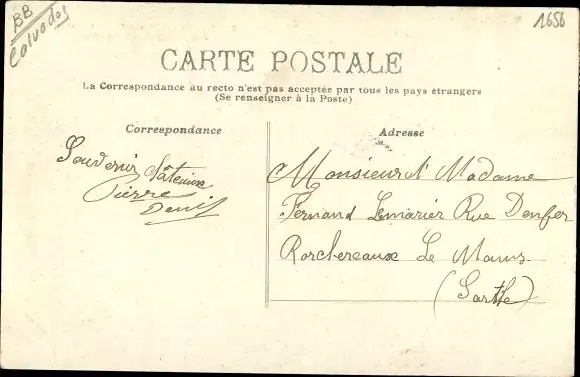 BB
Calvados
1656
CARTE POSTALE
La Correspondance au recto n'est pas acceptée par tous les pays étrangers
(Se renseigner à la Poste)
Correspondance
Adresse
Souvenir
Pierre
Denis
Monsieur et Madame
Fernand Lemarier Rue Denfer
Rorchereaux Le Mans
(Sarthe)